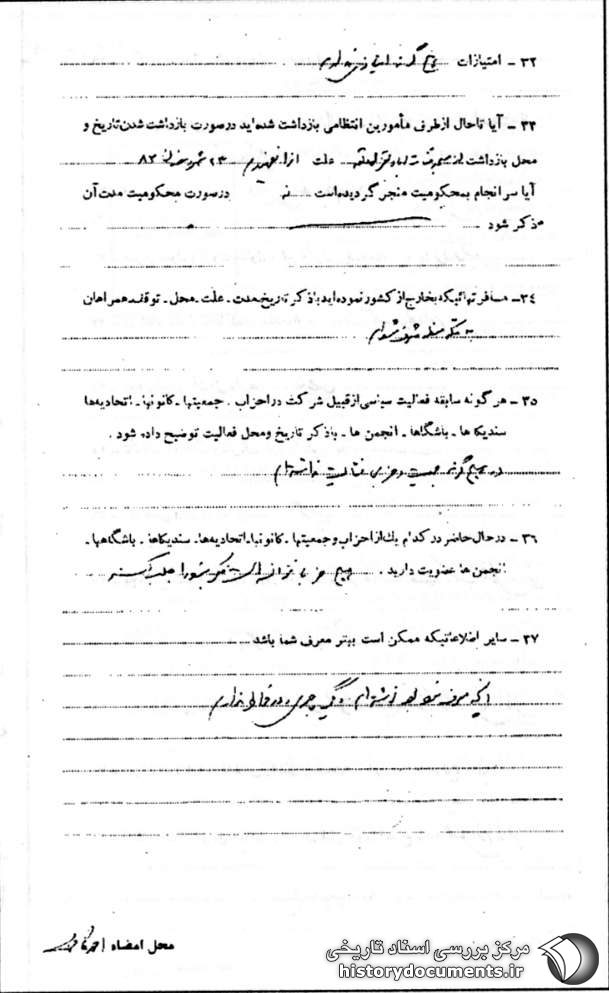 ۳۲ - امتیازات هیچ گونه امتیازی ندارم
۳۳ - آیا تاحال از طرف مأمورین انتظامی بازداشت شده‌اید درصورت بازداشت شدن تاریخ و
محل بازداشت علت
آیا سر انجام بمحکومیت منجر گردیده‌است نه درصورت محکومیت مدت آن
ذکر شود
۳۴- مسافرتهائیکه بخارج از کشور نموده‌اید باذکر تاریخ مدت ـ علت ـ محل ـ توقف همراهان
به مکه مشرف شده‌ام
۳۵ - هر گونه سابقه فعالیت سیاسی از قبیل شرکت در احزاب ـ جمعیتها ـ کانونها ـ اتحادیه‌ها
سندیکا ها ـ باشگاها ـ انجمن ها ـ باذکر تاریخ ومحل فعالیت توضیح داده شود .
در هیچ گونه جمعیت و حزبی فعالیت نداشته‌ام
۳۶ - درحال حاضر در کدام یك از احزاب و جمعیتها ـ کانونها ـ اتحادیه‌ها ـ سندیکاها ـ باشگاهها ـ
انجمن ها عضویت دارید . هیچ حزبی
۳۷ - سایر اطلاعاتیکه ممکن است بهتر معرف شما باشد
نوشته‌ام دیگر چیزی در خاطر ندارم
محل امضاء احمد
مرکز بررسی اسناد تاریخی
historydocuments.ir